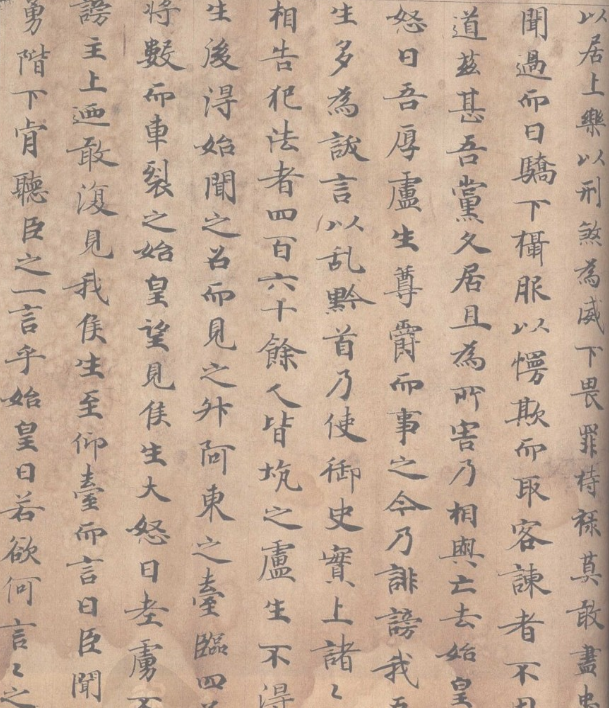 以居上樂以刑煞為威下畏罪持祿莫敢盡忠
聞過而日驕下欇服以慢欺而取容諫者不
道茲甚吾黨久居且為所害乃相與亡去始皇
怒曰吾厚盧生尊爵而事之今乃誹謗我吾
生多為訞言以乱黔首乃使御史實上諸〻
相告犯法者四百六十餘人皆坑之盧生不得
生後得始聞之召而見之升阿東之臺臨四
將數而車裂之始皇望見侯生大怒曰老虜不
謗主上迺敢復見我侯生至仰臺而言曰臣聞
勇陛下肯聽臣之一言乎始皇曰若欲何言〻之